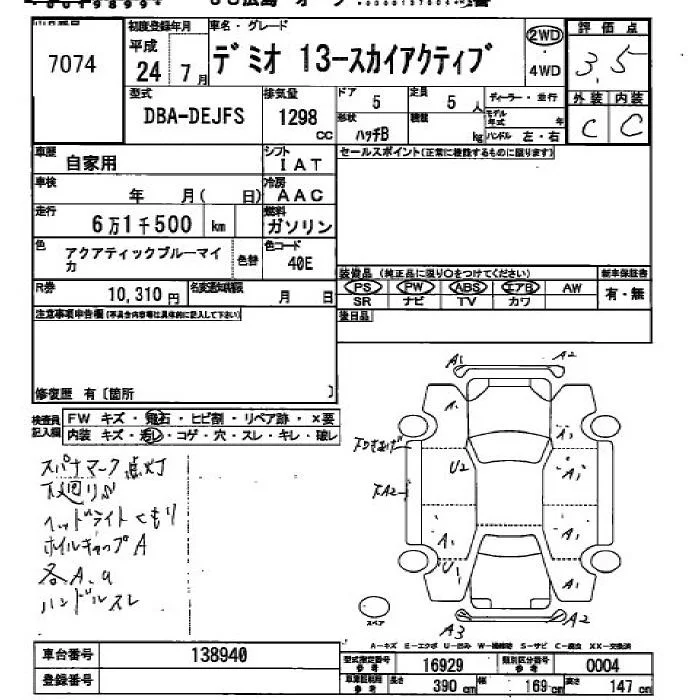 7074
初度登録年月
平成
24 7月
車名・グレード
デミオ 13-スカイアクティブ
2WD
・
4WD
評価点
3.5
外装 内装
C C
型式
DBA-DEJFS
排気量
1298
cc
ドア 5
定員 5 人
形状
ハッチB
積載
kg
ディーラー・並行
モデル
年式 年
ハンドル 左・右
車歴 自家用
シフト
IAT
セールスポイント(正常に機能するものに限ります)
車検
年 月( 日)
冷房
AAC
走行
6万1千500 km
燃料
ガソリン
色
アクアティックブルーマイカ
色替
色コード
40E
装備品(純正品に限り○をつけてください)
新車保証書
PS PW ABS エアB AW
SR ナビ TV カワ
有・無
R券 10,310円
名変通知期限
月 日
後日品
注意事項申告欄(不具合内容等は具体的に記入して下さい)
修復歴 有〔箇所 〕
検査員
記入欄
FW キズ・飛石・ヒビ割・リペア跡・×要
内装 キズ・汚レ・コゲ・穴・スレ・キレ・破レ
スパナマーク点灯
下廻りS
ヘッドライトくもり
ホイルキャップA
各A、U
ハンドルスレ
A1 A2
A1
下Dきあげ
U2
A1
A1
下A2
A1
A1
U1
A1
A3 A2
スペア
A-キズ E-エクボ U-凹み W-補修跡 S-サビ C-腐食 XX-交換済
車台番号 138940
登録番号
型式指定番号
参考
16929
類別区分番号
参考
0004
車庫証明用
参考
長さ 390 cm 幅 169 cm 高さ 147 cm